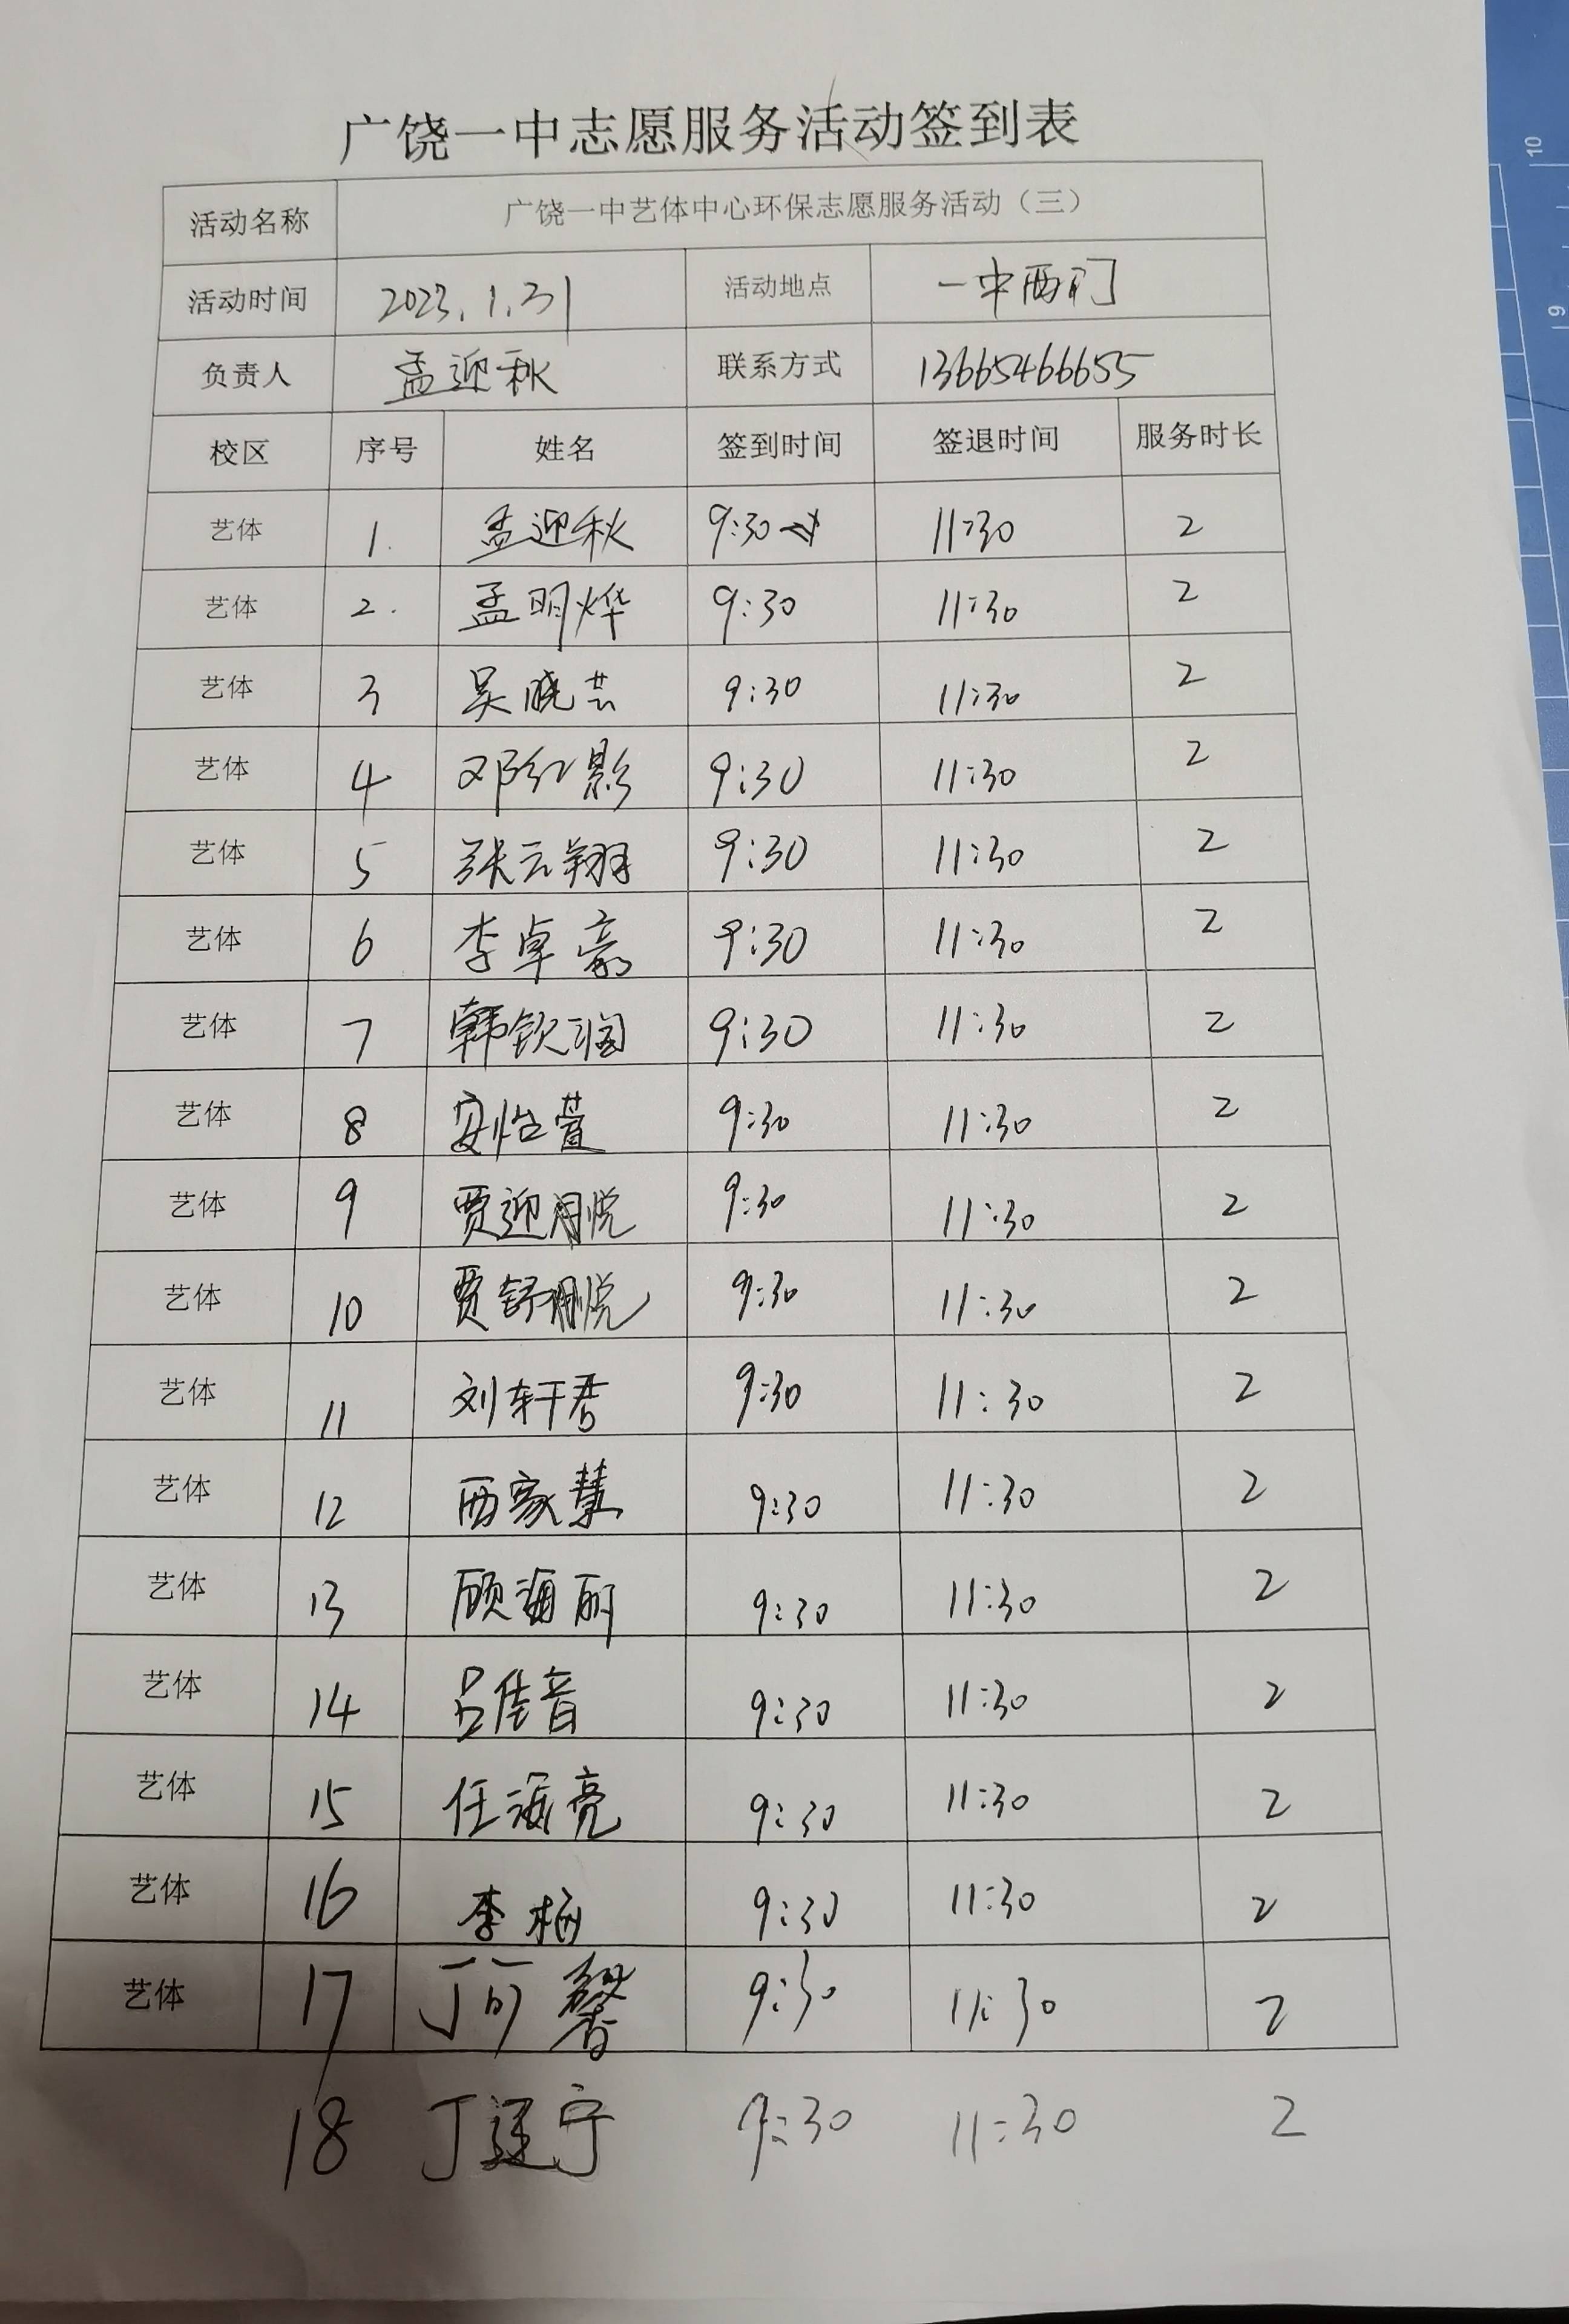 广饶一中志愿服务活动签到表
活动名称 广饶一中艺体中心环保志愿服务活动（三）
活动时间 2023.1.31 活动地点 一中西门
负责人 孟迎秋 联系方式 13665466655
校区 序号 姓名 签到时间 签退时间 服务时长
艺体 1. 孟迎秋 9:30 11:30 2
艺体 2. 孟明烨 9:30 11:30 2
艺体 3 吴晓芸 9:30 11:30 2
艺体 4 邓红影 9:30 11:30 2
艺体 5 张云翔 9:30 11:30 2
艺体 6 李卓豪 9:30 11:30 2
艺体 7 韩钦润 9:30 11:30 2
艺体 8 安怡萱 9:30 11:30 2
艺体 9 贾迎悦 9:30 11:30 2
艺体 10 贾舒悦 9:30 11:30 2
艺体 11 刘轩秀 9:30 11:30 2
艺体 12 西家慧 9:30 11:30 2
艺体 13 顾海丽 9:30 11:30 2
艺体 14 吕佳音 9:30 11:30 2
艺体 15 任海亮 9:30 11:30 2
艺体 16 李梅 9:30 11:30 2
艺体 17 丁可馨 9:30 11:30 2
18 丁辽宁 9:30 11:30 2
10
9